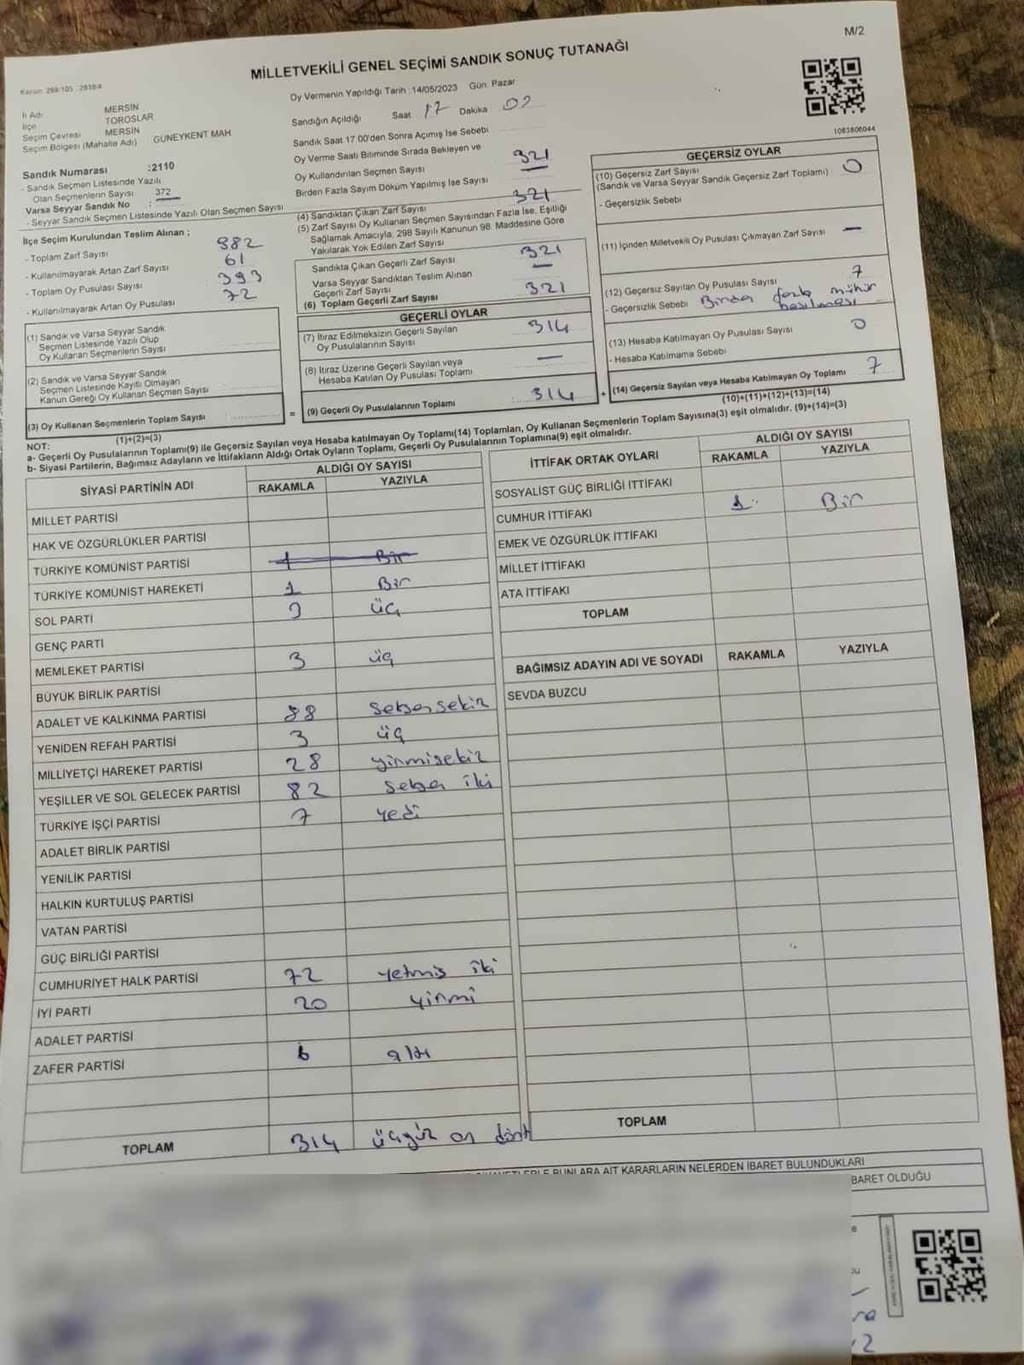 M/2
MİLLETVEKİLİ GENEL SEÇİMİ SANDIK SONUÇ TUTANAĞI
İl Adı MERSİN
İlçe TOROSLAR
Seçim Çevresi MERSİN
Seçim Bölgesi (Mahalle Adı) GÜNEYKENT MAH
Sandık Numarası :2110
- Sandık Seçmen Listesinde Yazılı
Olan Seçmenlerin Sayısı 372
Varsa Seyyar Sandık No :
- Seyyar Sandık Seçmen Listesinde Yazılı Olan Seçmen Sayısı
İlçe Seçim Kurulundan Teslim Alınan ;
- Toplam Zarf Sayısı 382
- Kullanılmayarak Artan Zarf Sayısı 61
- Toplam Oy Pusulası Sayısı 393
- Kullanılmayarak Artan Oy Pusulası 72
(1) Sandık ve Varsa Seyyar Sandık
Seçmen Listesinde Yazılı Olup
Oy Kullanan Seçmenlerin Sayısı
(2) Sandık ve Varsa Seyyar Sandık
Seçmen Listesinde Kayıtlı Olmayan
Kanun Gereği Oy Kullanan Seçmen Sayısı
(3) Oy Kullanan Seçmenlerin Toplam Sayısı
(1)+(2)=(3)
Oy Vermenin Yapıldığı Tarih :14/05/2023 Gün: Pazar
Sandığın Açıldığı Saat 17 Dakika 02
Sandık Saat 17:00'den Sonra Açılmış İse Sebebi
Oy Verme Saati Bitiminde Sırada Bekleyen ve
Oy Kullandırılan Seçmen Sayısı 321
Birden Fazla Sayım Döküm Yapılmış İse Sayısı —
(4) Sandıktan Çıkan Zarf Sayısı 321
(5) Zarf Sayısı Oy Kullanan Seçmen Sayısından Fazla İse, Eşitliği
Sağlamak Amacıyla, 298 Sayılı Kanunun 98. Maddesine Göre
Yakılarak Yok Edilen Zarf Sayısı —
Sandıkta Çıkan Geçerli Zarf Sayısı 321
Varsa Seyyar Sandıktan Teslim Alınan
Geçerli Zarf Sayısı —
(6) Toplam Geçerli Zarf Sayısı 321
GEÇERLİ OYLAR
(7) İtiraz Edilmeksizin Geçerli Sayılan
Oy Pusulalarının Sayısı 314
(8) İtiraz Üzerine Geçerli Sayılan veya
Hesaba Katılan Oy Pusulası Toplamı —
= (9) Geçerli Oy Pusulalarının Toplamı 314 +
1083806044
GEÇERSİZ OYLAR
(10) Geçersiz Zarf Sayısı 0
(Sandık ve Varsa Seyyar Sandık Geçersiz Zarf Toplamı)
- Geçersizlik Sebebi
(11) İçinden Milletvekili Oy Pusulası Çıkmayan Zarf Sayısı —
(12) Geçersiz Sayılan Oy Pusulası Sayısı 7
- Geçersizlik Sebebi Birden fazla mühür
basılması
(13) Hesaba Katılmayan Oy Pusulası Sayısı 0
- Hesaba Katılmama Sebebi
(14) Geçersiz Sayılan veya Hesaba Katılmayan Oy Toplamı 7
(10)+(11)+(12)+(13)=(14)
NOT:
a- Geçerli Oy Pusulalarının Toplamı(9) ile Geçersiz Sayılan veya Hesaba katılmayan Oy Toplamı(14) Toplamları, Oy Kullanan Seçmenlerin Toplam Sayısına(3) eşit olmalıdır. (9)+(14)=(3)
b- Siyasi Partilerin, Bağımsız Adayların ve İttifakların Aldığı Ortak Oyların Toplamı, Geçerli Oy Pusulalarının Toplamına(9) eşit olmalıdır.
SİYASİ PARTİNİN ADI ALDIĞI OY SAYISI
RAKAMLA YAZIYLA
MİLLET PARTİSİ
HAK VE ÖZGÜRLÜKLER PARTİSİ
TÜRKİYE KOMÜNİST PARTİSİ 1 Bir
TÜRKİYE KOMÜNİST HAREKETİ 1 Bir
SOL PARTİ 3 üç
GENÇ PARTİ
MEMLEKET PARTİSİ 3 üç
BÜYÜK BİRLİK PARTİSİ
ADALET VE KALKINMA PARTİSİ 88 seksensekiz
YENİDEN REFAH PARTİSİ 3 üç
MİLLİYETÇİ HAREKET PARTİSİ 28 yirmisekiz
YEŞİLLER VE SOL GELECEK PARTİSİ 82 seksen iki
TÜRKİYE İŞÇİ PARTİSİ 7 yedi
ADALET BİRLİK PARTİSİ
YENİLİK PARTİSİ
HALKIN KURTULUŞ PARTİSİ
VATAN PARTİSİ
GÜÇ BİRLİĞİ PARTİSİ
CUMHURİYET HALK PARTİSİ 72 yetmiş iki
İYİ PARTİ 20 yirmi
ADALET PARTİSİ
ZAFER PARTİSİ 6 altı
TOPLAM 314 üçyüz on dört
İTTİFAK ORTAK OYLARI ALDIĞI OY SAYISI
RAKAMLA YAZIYLA
SOSYALİST GÜÇ BİRLİĞİ İTTİFAKI
CUMHUR İTTİFAKI 1 Bir
EMEK VE ÖZGÜRLÜK İTTİFAKI
MİLLET İTTİFAKI
ATA İTTİFAKI
TOPLAM
BAĞIMSIZ ADAYIN ADI VE SOYADI RAKAMLA YAZIYLA
SEVDA BUZCU
TOPLAM
BUNLARA AİT KARARLARIN NELERDEN İBARET BULUNDUKLARI
BARET OLDUĞU